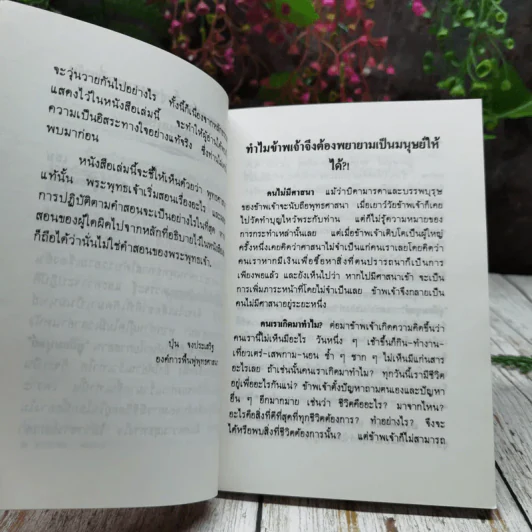 จะวุ่นวายกันไปอย่างไร ทั้งนี้ก็เนื่องจาก
แสดงไว้ในหนังสือเล่มนี้ จะทำให้ผู้อ่าน
ความเป็นอิสระทางใจอย่างแท้จริง
พบมาก่อน
หนังสือเล่มนี้จะชี้ให้เห็นด้วยว่า
แท้นั้น พระพุทธเจ้าเริ่มสอนเรื่องอะไร
การปฏิบัติตามคำสอนจะเป็นอย่างไรในที่สุด
สอนของผู้ใดผิดไปจากหลักที่อธิบายไว้ในหนังสือ
ก็ถือได้ว่านั่นไม่ใช่คำสอนของพระพุทธเจ้า
ปุ่น จงประเสริฐ
องค์การฟื้นฟูพุทธศาสนา
ทำไมข้าพเจ้าจึงต้องพยายามเป็นมนุษย์ให้
ได้?!
คนไม่มีศาสนา แม้ว่าบิดามารดาและบรรพบุรุษ
ของข้าพเจ้าจะนับถือพุทธศาสนา เมื่อเยาว์วัยข้าพเจ้าก็เคย
ไปวัดทำบุญไหว้พระกับท่าน แต่ก็ไม่รู้ความหมายของ
การกระทำเหล่านั้นเลย แต่เมื่อข้าพเจ้าเติบโตเป็นผู้ใหญ่
ครั้งหนึ่งเคยคิดว่าศาสนาไม่จำเป็นแก่คนเราเลยโดยคิดว่า
คนเราหากมีเงินเพื่อซื้อหาสิ่งที่คนปรารถนาก็เป็นการ
เพียงพอแล้ว และยังเห็นไปว่า หากไปมีศาสนาเข้า จะเป็น
การเพิ่มภาระหน้าที่โดยไม่จำเป็นเลย ข้าพเจ้าจึงกลายเป็น
คนไม่มีศาสนาอยู่ระยะหนึ่ง
คนเราเกิดมาทำไม? ต่อมาข้าพเจ้าเกิดความคิดขึ้นว่า
คนเรานี้ไม่เห็นมีอะไร วันหนึ่ง ๆ เช้าขึ้นก็กิน-ทำงาน-
เที่ยวเตร่-เสพกาม-นอน ซ้ำ ๆ ซาก ๆ ไม่เห็นมีแก่นสาร
อะไรเลย ถ้าเช่นนั้นคนเราเกิดมาทำไม? ทุกวันนี้เรามีชีวิต
อยู่เพื่ออะไรกันแน่? ข้าพเจ้าตั้งปัญหาถามตนเองและปัญหา
อื่น ๆ อีกมากมาย เช่นว่า ชีวิตคืออะไร? มาจากไหน?
อะไรคือสิ่งที่ดีที่สุดที่ทุกชีวิตต้องการ? ทำอย่างไร? จึงจะ
ได้หรือพบสิ่งที่ชีวิตต้องการนั้น? แต่ข้าพเจ้าก็ไม่สามารถ